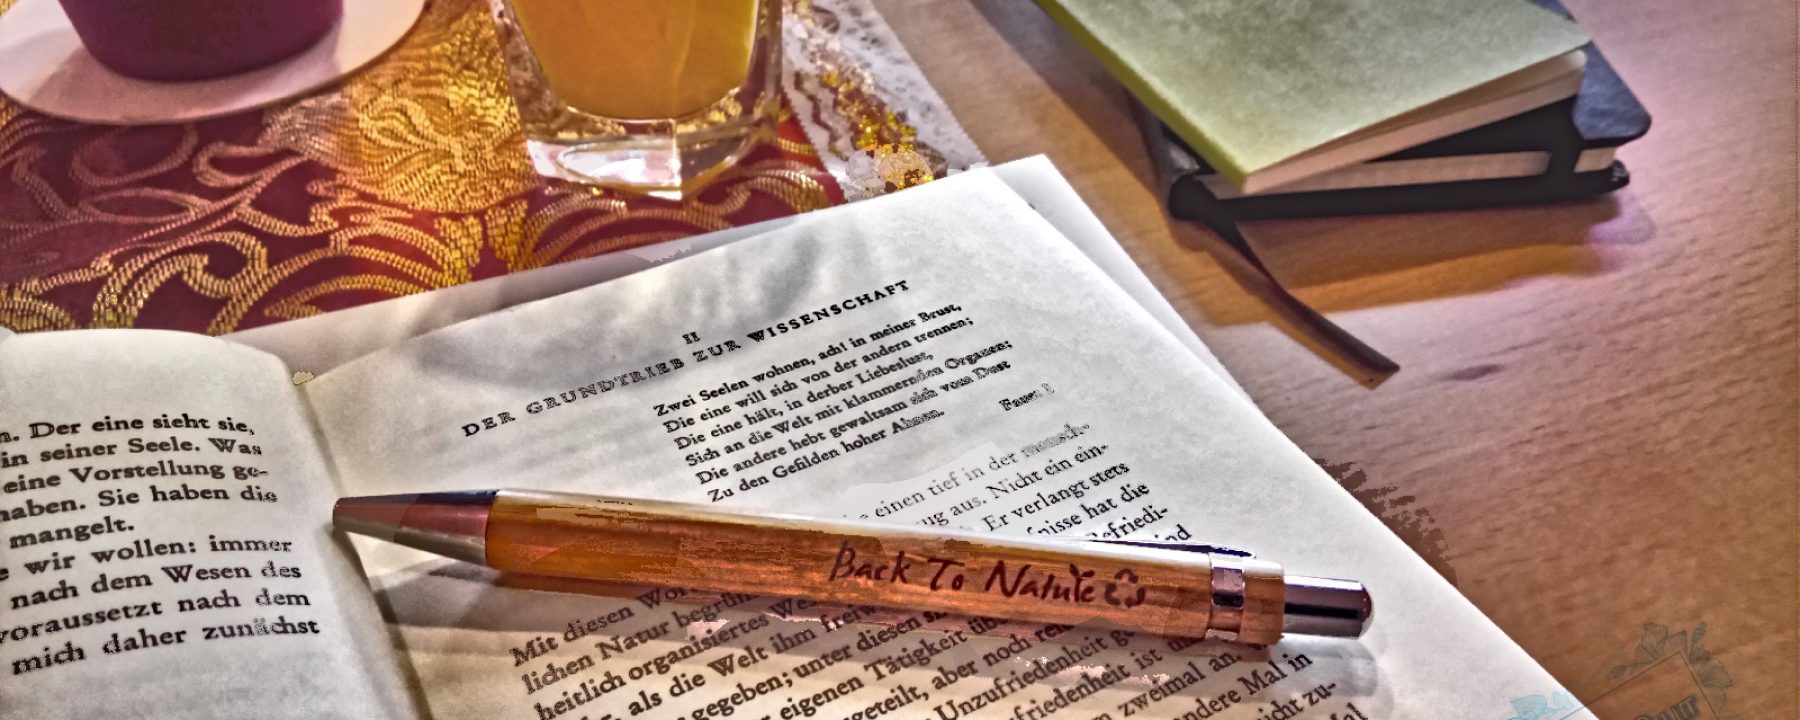 n. Der eine sieht sie,
in seiner Seele. Was
eine Vorstellung ge-
haben. Sie haben die
mangelt.
e wir wollen: immer
nach dem Wesen des
voraussetzt nach dem
mich daher zunächst
II
DER GRUNDTRIEB ZUR WISSENSCHAFT
Zwei Seelen wohnen, ach! in meiner Brust,
Die eine will sich von der andern trennen;
Die eine hält, in derber Liebeslust,
Sich an die Welt mit klammernden Organen;
Die andere hebt gewaltsam sich vom Dust
Zu den Gefilden hoher Ahnen.
Faust I
einen tief in der mensch-
ug aus. Nicht ein ein-
Er verlangt stets
fnisse hat die
Befriedi-
ind
Back To Nature
Mit diesen Wor
lichen Natur begrün
heitlich organisiertes We
als die Welt ihm freiw
gegeben; unter diesen si
eigenen Tätigkeit üb
geteilt, aber noch
Unzufriedenheit g
friedenheit ist
zweimal an
andere Mal in
icht zu-